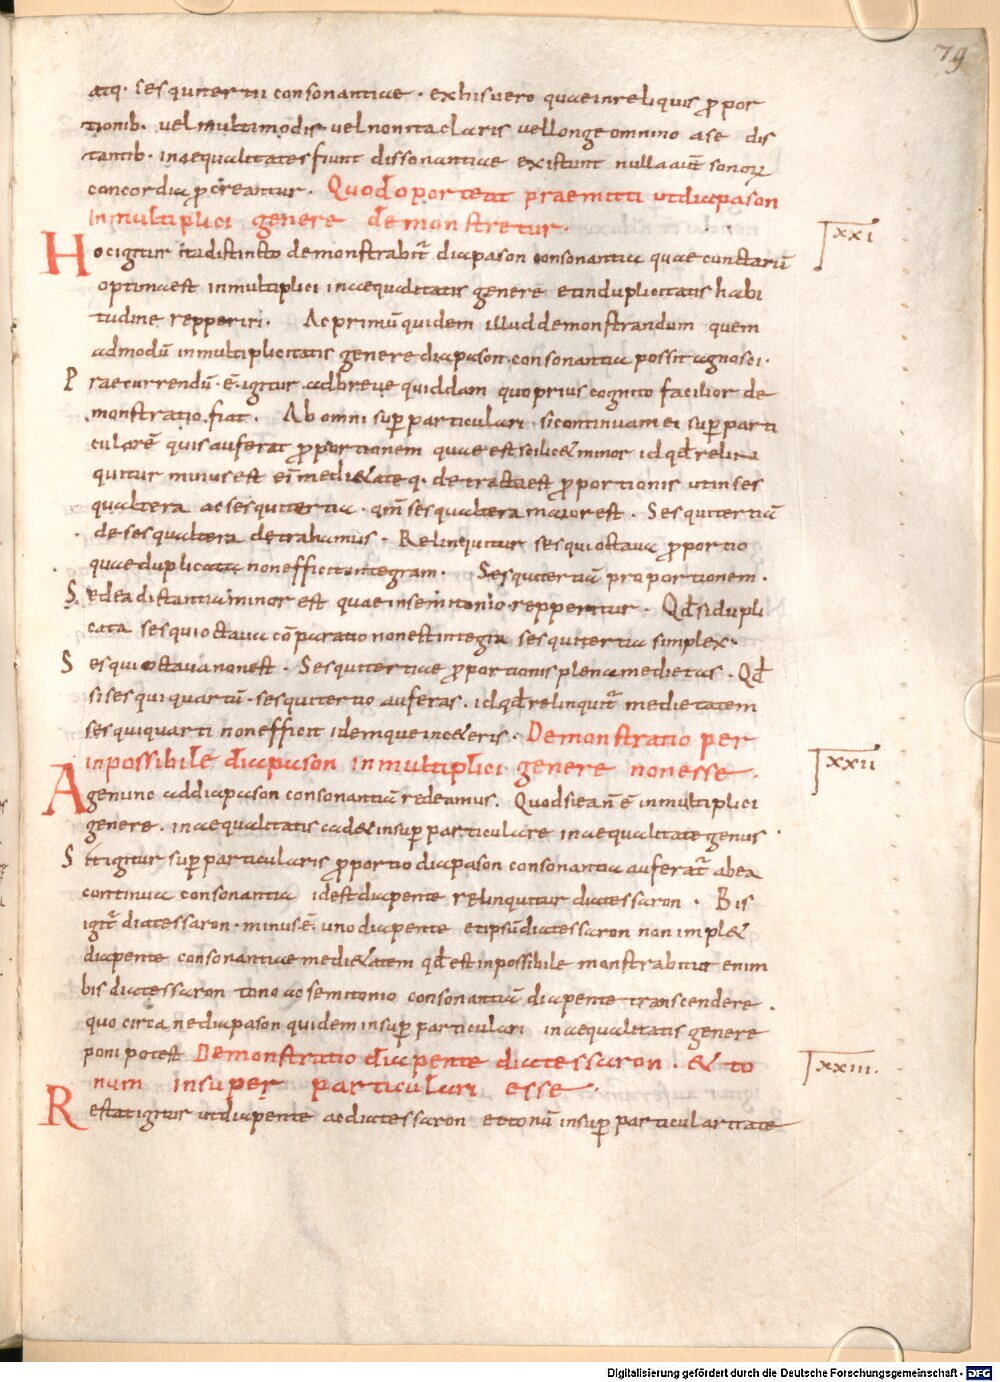 79
atq· sesquitertii consonantiae · exhis uero quae in reliquis ꝓpor
tionib· uel multimodis uel non ita claris uel longe omnino a se dis
tantib· inaequalitates fiunt dissonantiae existunt nulla aut̄ sonoꝝ
concordia ꝓcreantur. Quod oporteat praemitti ut diapason
in multiplici genere demonstretur.
xxi
Hoc igitur ita distincto demonstrabit̄ diapason consonantia quae cunctarū
optima est in multiplici inaequalitatis genere et in duplicitatis habi
tudine repperiri. Ac primū quidem illud demonstrandum quem
admodū in multiplicitatis genere diapason consonantia possit agnosci.
Praecurrendū· ē igitur ad breue quiddam quo prius cognito facilior de
monstratio fiat. Ab omni sup̱particulari si continuam ei sup̱parti
cularē quis auferat ꝓportionem quae est scilic& minor id qđ relin
quitur minus est ei medi&ateq· detracta est ꝓportionis ut in ses
qualtera ac sesquitertia · qm̄ sesqualtera maior est. Sesquitertiā
de sesqualtera detrahamus. Relinquitur sesquioctaua ꝓportio
quae duplicata non efficit integram. Sesquitertiā proportionem.
Sed ea distantia minor est quae in semitonio repperitur. Qđ si dupli
cata sesquioctaua cōparatio non est integra sesquitertia simplex.
Sesquioctaua non est. Sesquitertiae ꝓportionis plena medietas. Qđ
si sesquiquartū· sesquitertio auferas. id qđ relinquit̄ medietatem
sesquiquarti non efficit idemque in c&eris. Demonstratio per
inpossibile diapason in multiplici genere non esse.
xxii
Age nunc ad diapason consonantiā redeamus. Quod si ea n̄ ē in multiplici
genere. inaequalitatis cad& in sup̱particulare inaequalitate genus.
Sit igitur sup̱particularis ꝓportio diapason consonantia auferat̄ ab ea
continua consonantia id est diapente relinquitur diatessaron. Bis
igit̄ diatessaron· minus ē uno diapente et ipsū diatessaron non impl&
diapente consonantiae medi&atem qđ est inpossibile monstrabitur enim
bis diatessaron tono ac semitonio consonantiā diapente transcendere.
quo circa ne diapason quidem in sup̱particulari inaequalitatis genere
poni potest Demonstratio diapente diatessaron. & to
num in superparticulari esse.
xxiii.
Restat igitur ut diapente ac diatessaron et tonū in sup̱particularitate
Digitalisierung gefördert durch die Deutsche Forschungsgemeinschaft - DFG